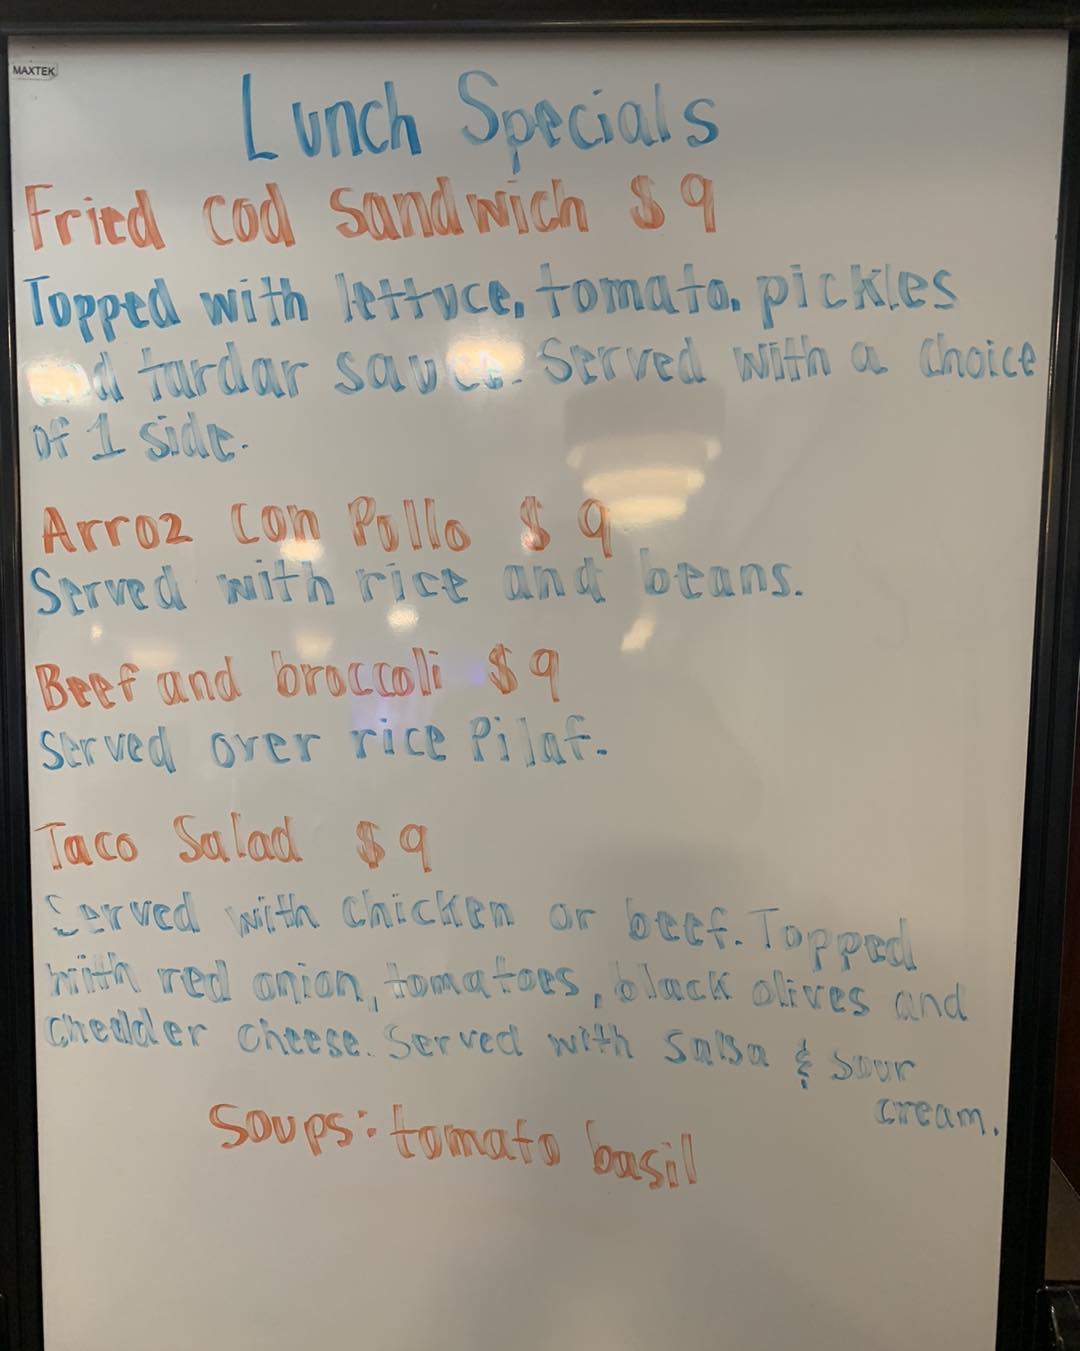 MAXTEK
Lunch Specials
Fried cod sandwich $9
Topped with lettuce, tomato, pickles
and tardar sauce. Served with a choice
of 1 side.
Arroz con Pollo $9
Served with rice and beans.
Beef and broccoli $9
Served over rice Pilaf.
Taco Salad $9
Served with chicken or beef. Topped
with red onion, tomatoes, black olives and
chedder cheese. Served with salsa & sour
cream.
Soups: tomato basil